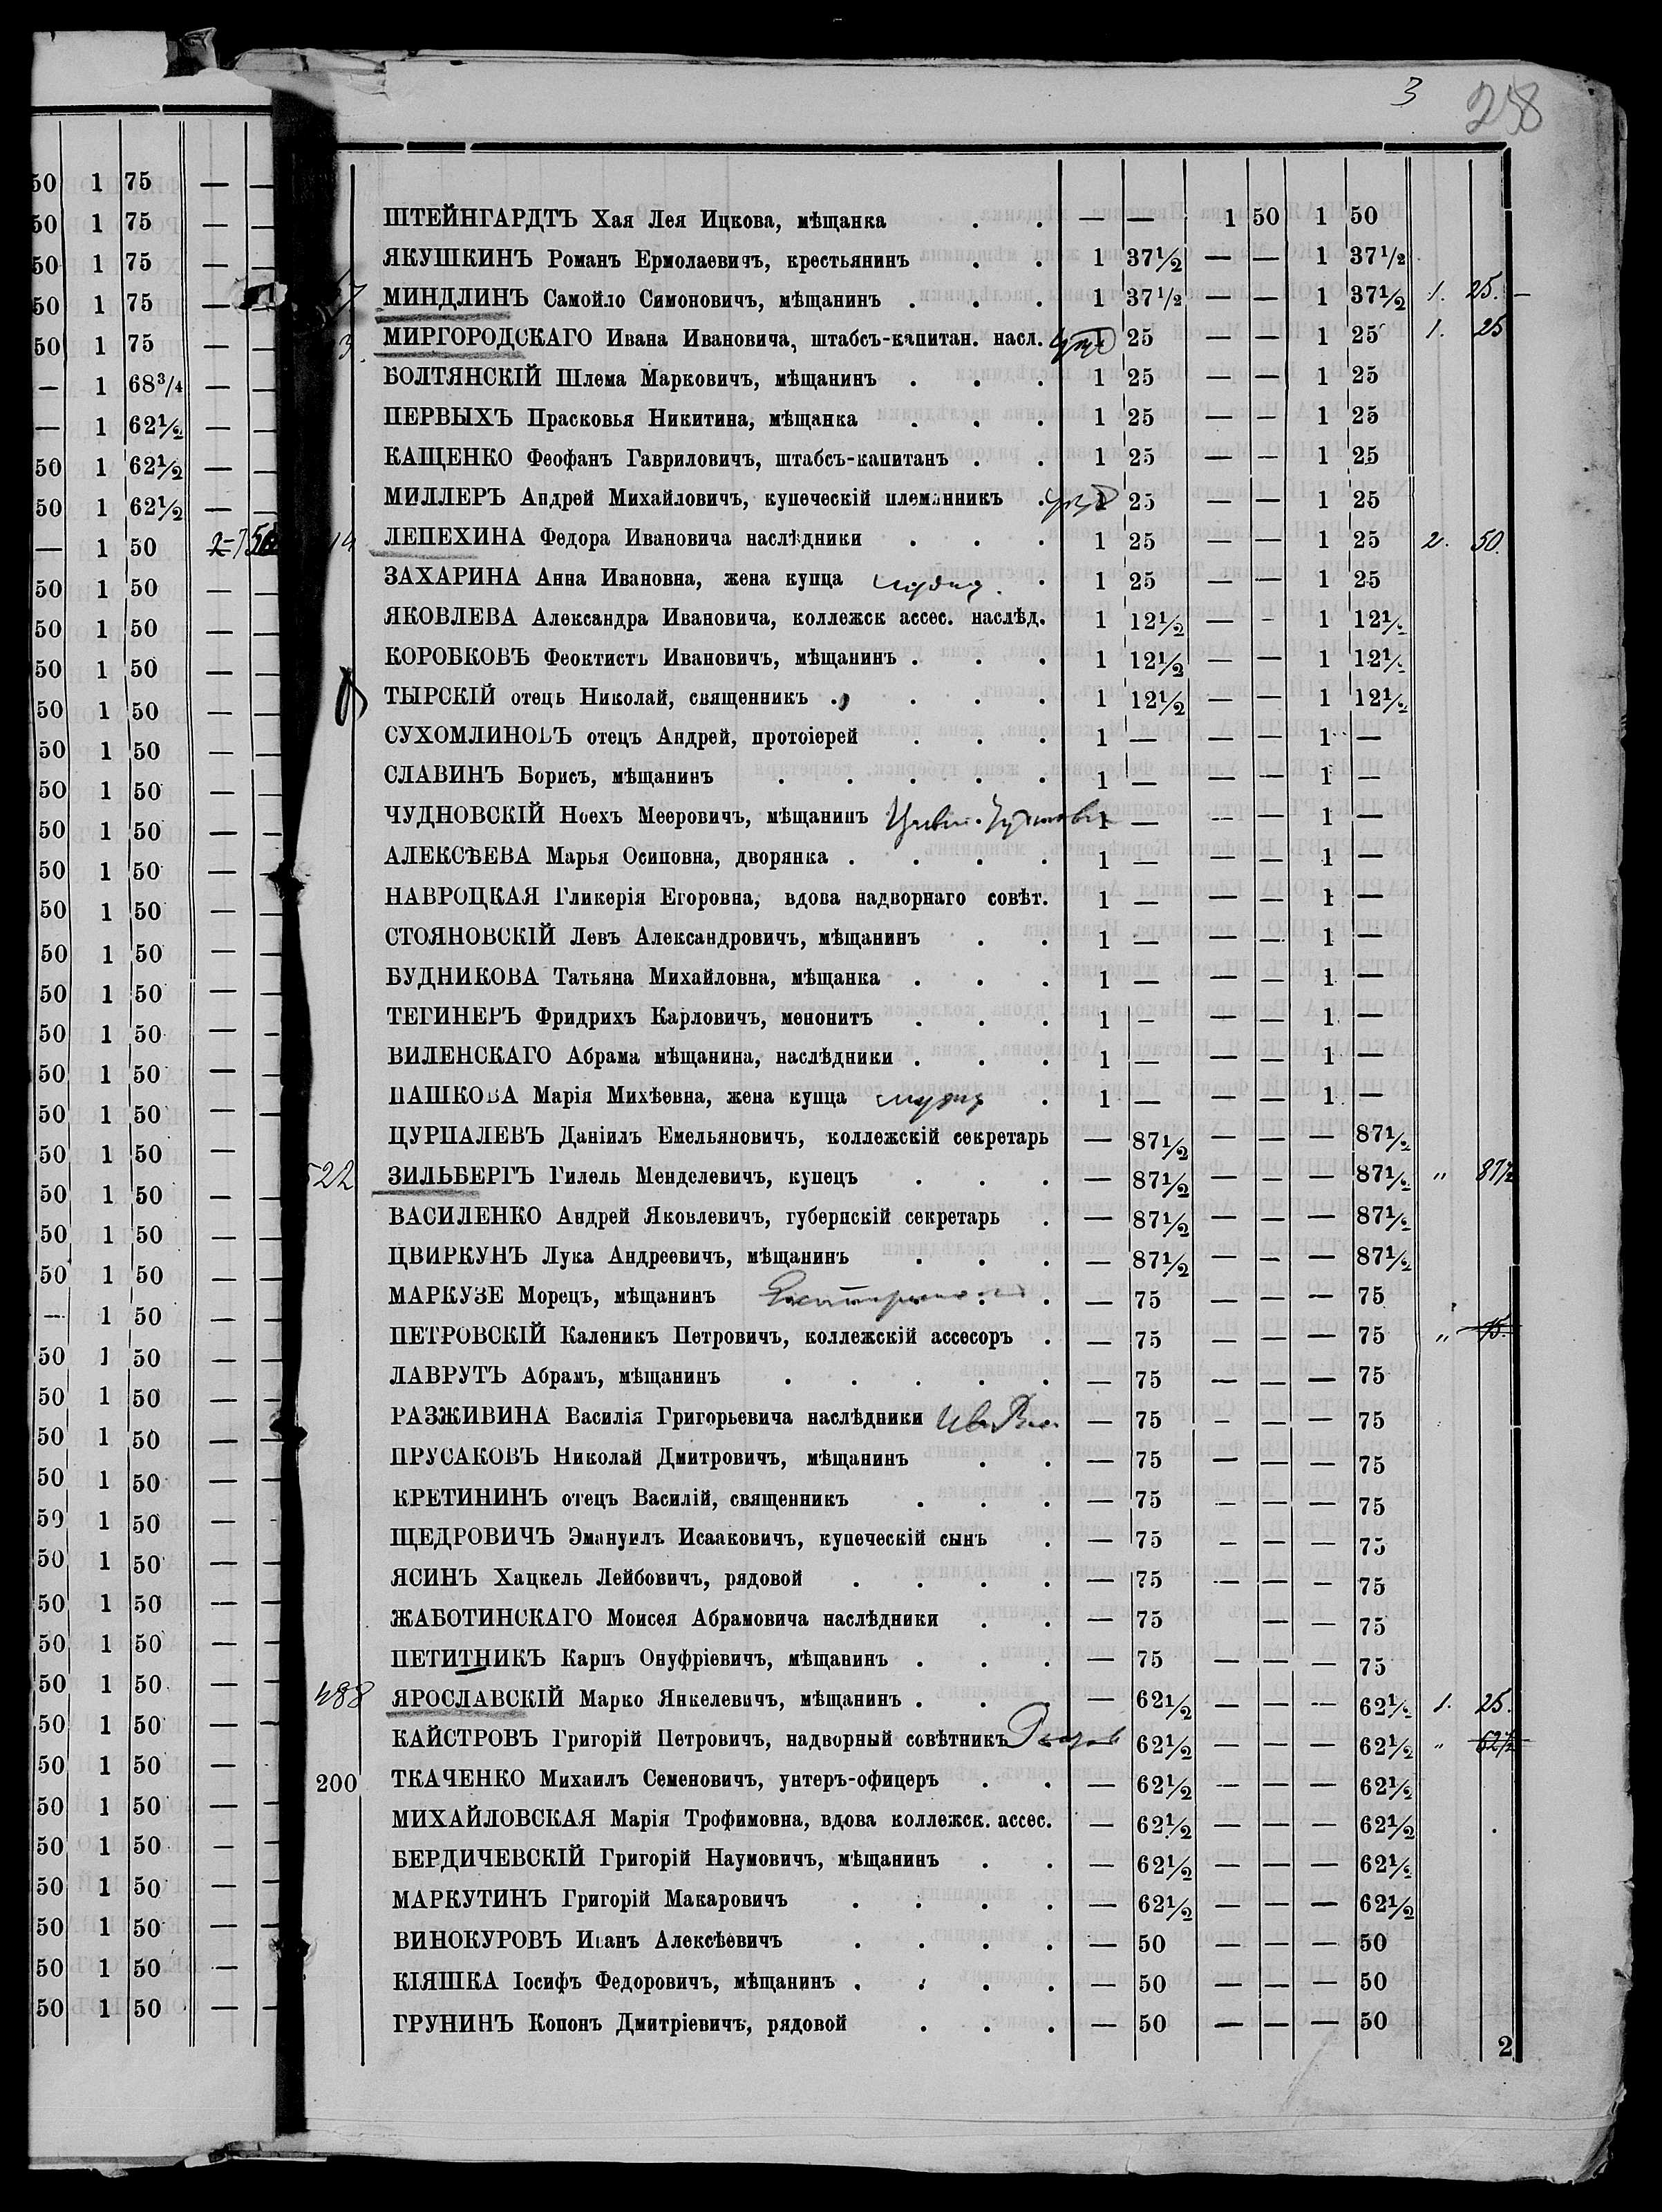 3 258
50 1 75 — —
50 1 75 — —
50 1 75 — —
50 1 75 —
50 1 75 —
— 1 68 3/4 — —
— 1 62 1/2 — —
50 1 62 1/2 — —
50 1 62 1/2 — —
— 1 50
50 1 50 — —
50 1 50 — —
50 1 50 — —
50 1 50 — —
50 1 50 — —
50 1 50 — —
50 1 50 — —
50 1 50 — —
50 1 50 — —
50 1 50 — —
50 1 50 — —
50 1 50 — —
50 1 50 — —
50 1 50 — —
50 1 50 — —
50 1 50 — —
50 1 50 — —
50 1 50 — —
— 1 50 — —
50 1 50 — —
50 1 50 — —
50 1 50 — —
50 1 50 — —
59 1 50 — —
50 1 50 — —
50 1 50 — —
50 1 50 — —
50 1 50 — —
50 1 50 — —
50 1 50 — —
50 1 50 — —
50 1 50 — —
50 1 50 — —
50 1 50 — —
50 1 50 — —
50 1 50 — —
ШТЕЙНГАРДТЪ Хая Лея Ицкова, мѣщанка . . — — 1 50 1 50
ЯКУШКИНЪ Романъ Ермолаевичъ, крестьянинъ . . 1 37 1/2 — — 1 37 1/2
МИНДЛИНЪ Самойло Симоновичъ, мѣщанинъ . . . 1 37 1/2 — — 1 37 1/2 1. 25. —
3. МИРГОРОДСКАГО Ивана Ивановича, штабсъ-капитан. насл. 25 — — 1 25 1. 25
БОЛТЯНСКІЙ Шлема Марковичъ, мѣщанинъ . . . 1 25 — — 1 25
ПЕРВЫХЪ Прасковья Никитина, мѣщанка . . . 1 25 — — 1 25
КАЩЕНКО Феофанъ Гавриловичъ, штабсъ-капитанъ . . 1 25 — — 1 25
МИЛЛЕРЪ Андрей Михайловичъ, купеческій племянникъ . 1 25 — — 1 25
14 ЛЕПЕХИНА Федора Ивановича наслѣдники . . . 1 25 — — 1 25 2. 50.
ЗАХАРИНА Анна Ивановна, жена купца . 1 25 — — 1 25
ЯКОВЛЕВА Александра Ивановича, коллежск ассес. наслѣд. 1 12 1/2 — - 1 12 1/2
КОРОБКОВЪ Феоктистъ Ивановичъ, мѣщанинъ . . . 1 12 1/2 — — 1 12 1/2
ТЫРСКІЙ отецъ Николай, священникъ . . . . 1 12 1/2 — — 1 12 1/2
СУХОМЛИНОВЪ отецъ Андрей, протоіерей . . . 1 — — — 1 —
СЛАВИНЪ Борисъ, мѣщанинъ . . . . . 1 — — 1 —
ЧУДНОВСКІЙ Ноехъ Мееровичъ, мѣщанинъ 1 — — — 1 —
АЛЕКСѢЕВА Марья Осиповна, дворянка . . . . 1 — — — 1 —
НАВРОЦКАЯ Гликерія Егоровна, вдова надворнаго совѣт. 1 — — — 1 —
СТОЯНОВСКІЙ Левъ Александровичъ, мѣщанинъ . . 1 — — — 1 —
БУДНИКОВА Татьяна Михайловна, мѣщанка . . . 1 — — — 1 —
ТЕГИНЕРЪ Фридрихъ Карловичъ, менонитъ . . . 1 — — — 1 —
ВИЛЕНСКАГО Абрама мѣщанина, наслѣдники . . . 1 — — — 1 —
ПАШКОВА Марія Михѣевна, жена купца . 1 — — — 1 —
ЦУРПАЛЕВЪ Даніилъ Емельяновичъ, коллежскій секретарь — 87 1/2 — — — 87 1/2
522 ЗИЛЬБЕРГЪ Гилель Менделевичъ, купецъ . . . — 87 1/2 — — — 87 1/2 „ 87 1/2
ВАСИЛЕНКО Андрей Яковлевичъ, губернскій секретарь . — 87 1/2 — — — 87 1/2
ЦВИРКУНЪ Лука Андреевичъ, мѣщанинъ . . . — 87 1/2 — — — 87 1/2
МАРКУЗЕ Морецъ, мѣщанинъ . . — 75 — — — 75
ПЕТРОВСКІЙ Каленикъ Петровичъ, коллежскій ассесоръ . — 75 — — — 75 „ 75.
ЛАВРУТЪ Абрамъ, мѣщанинъ . . . . . — 75 — — — 75
РАЗЖИВИНА Василія Григорьевича наслѣдники — 75 — — — 75
ПРУСАКОВЪ Николай Дмитровичъ, мѣщанинъ . . — 75 — — — 75
КРЕТИНИНЪ отецъ Василій, священникъ . . . — 75 — — — 75
ЩЕДРОВИЧЪ Эмануилъ Исааковичъ, купеческій сынъ . — 75 — — — 75
ЯСИНЪ Хацкель Лейбовичъ, рядовой . . . . — 75 — — — 75
ЖАБОТИНСКАГО Моисея Абрамовича наслѣдники . . — 75 — — 75
ПЕТИТНИКЪ Карпъ Онуфріевичъ, мѣщанинъ . . . — 75 — — — 75
488 ЯРОСЛАВСКІЙ Марко Янкелевичъ, мѣщанинъ . . . — 62 1/2 — — — 62 1/2 1. 25.
КАЙСТРОВЪ Григорій Петровичъ, надворный совѣтникъ 62 1/2 — — — 62 1/2 „ 62 1/2
200 ТКАЧЕНКО Михаилъ Семеновичъ, унтеръ-офицеръ . . — 62 1/2 — — — 62 1/2
МИХАЙЛОВСКАЯ Марія Трофимовна, вдова коллежск. ассес. — 62 1/2 — — — 62 1/2
БЕРДИЧЕВСКІЙ Григорій Наумовичъ, мѣщанинъ . . — 62 1/2 — — — 62 1/2
МАРКУТИНЪ Григорій Макаровичъ . . . . — 62 1/2 — — — 62 1/2
ВИНОКУРОВЪ Иванъ Алексѣевичъ . . . . — 50 — — — 50
КІЯШКА Іосифъ Федоровичъ, мѣщанинъ . . . . — 50 — — — 50
ГРУНИНЪ Копонъ Дмитріевичъ, рядовой . . . — 50 — — — 50
2